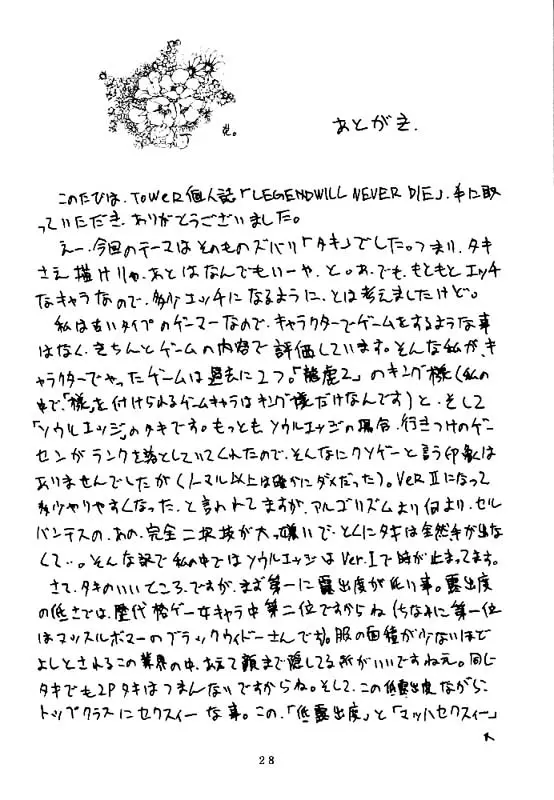 あとがき.
このたびは、TOWER個人誌「LEGEND WILL NEVER DIE」、手に取
っていただき、ありがとうございました。
えー、今回のテーマはそのものズバリ「タキ」でした。つまり、タキ
さえ描けりゃ、あとはなんでもいーや、と。あ、でも、もともとエッチ
なキャラなので、多少エッチになるように、とは考えましたけど。
私は古いタイプのゲーマーなので、キャラクターでゲームをするような事
はなく、きちんとゲームの内容で評価しています。そんな私が、キ
ャラクターでやったゲームは過去に2つ。「龍虎2」のキング様(私の
中で、「様」を付けられるゲームキャラはキング様だけなんです)と、そして
「ソウルエッジ」のタキです。もっとも、ソウルエッジの場合、行きつけのゲー
センがランクを落としていてくれたので、そんなにクソゲーと言う印象は
ありませんでしたが(ノーマル以上は確かにダメだった)。Ver.IIになって
多少やりやすくなった、と言われてますが、アルゴリズムより何より、セル
バンテスの、あの、完全二択技が大っ嫌いで、とくにタキは全然手が出な
くて…。そんな訳で私の中ではソウルエッジはVer.Iで時が止まってます。
さて、タキのいいところ、ですが、まず第一に露出度が低い事。露出度
の低さでは、歴代格ゲー女キャラ中第二位ですからね(ちなみに第一位
はマッスルボマーのブラックウィドーさんです)。服の面積が少ないほど
よしとされるこの業界の中、あえて顔まで隠してる所がいいですねえ。同じ
タキでも2Pタキはつまんないですからね。そして、この低露出度ながら、
トップクラスにセクスィーな事。この、「低露出度」と「マッハセクスィー」
28